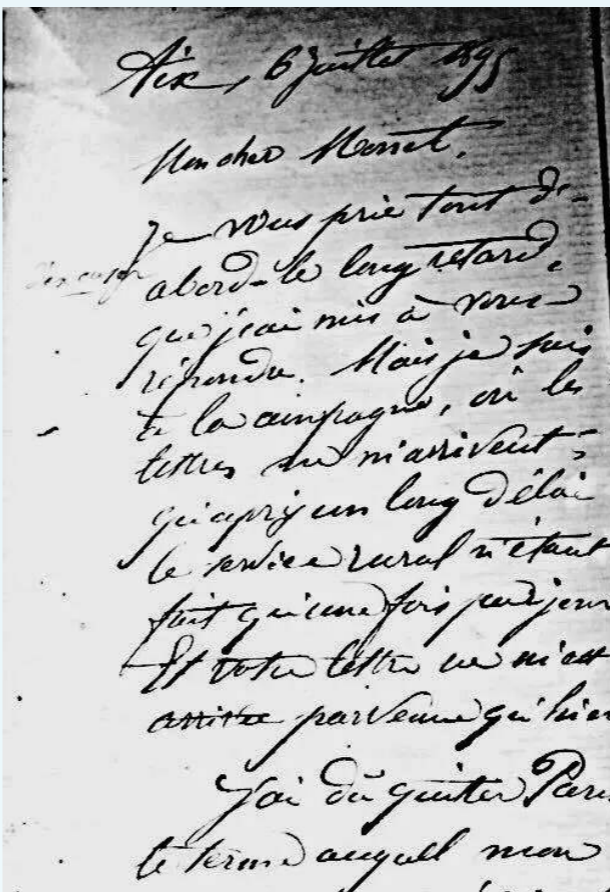 Aix, 6 Juillet 1895
Mon cher Monet,
Je vous prie tout d'-
d'excuser
abord le long retard,
que j'ai mis à vous
répondre. Mais je suis
à la campagne, où les
lettres ne m'arrivent
qu'après un long délai
le service rural n'étant
fait qu'une fois par jour
Et votre lettre ne m'est
arrivée parvenue qu'hier
J'ai dû quitter Paris
le terme auquel mon